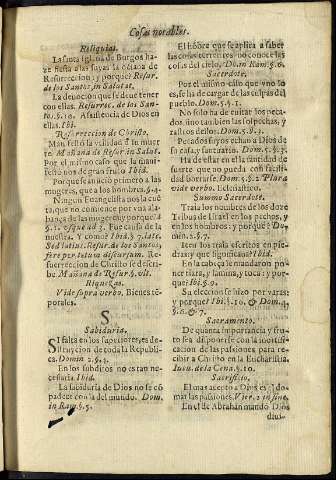 Cosas notables.
Reliquias.
La santa Iglesia de Burgos ha-
ze fiesta a las suyas la octava de
Resurreccion: y porque? Resur.
de los Santos, in Salutat.
La devocion que se deve tener
con ellas. Resurrec. de los San-
tos, §.10. Assistencia de Dios en
ellas. Ibid.
Resurreccion de Christo.
Manifestò la vtilidad à su muer
te. Mañana de Resur. in Salut.
Por el mismo caso que la mani-
festò nos dè gran fruto. Ibid.
Porque se anuncio primero a las
mugeres, que a los hombres. §.4.
Ningun Evangelista nos la cuẽ
ta, que no comience por vna ala-
bança de las mugeres: y porque?
§.1. esque ad 7. Fue causa de la
nuestra. Y como? Ibid. §.7. late.
Sed latius. Resur. de los Santos,
fere per totum discursum. Re-
surreccion de Christo se descri-
be. Mañana de Resur. §. vlt.
Riquezas.
Vide supra verbo. Bienes tẽ-
porales.
S
Sabiduria.
SI falta en los superiores, es de-
struycion de toda la Republi-
ca. Domin. 2. §.3.
En los subditos no es tan ne-
cessaria. Ibid.
La sabiduria de Dios no se cõ
padece con la del mundo. Dom.
in Ram. §.5.
El hõbre que se aplica a saber
las cosas terrestres, no conoce las
cosas del cielo. Do. in Ram. §.6.
Sacerdote.
Por el mismo caso que vno lo
es, se ha de cargar de las culpas del
pueblo. Dom. 5. §.1.
No solo ha de evitar los peca-
dos, sino tambien las sospechas, y
rastros dellos. Dom. 5. §.3.
Pecados suyos echan a Dios de
su casa, y santuario. Dom. 5. §.3.
Ha de estar en ella la santidad de
suerte, que no pueda con facilidad
faltar. Dom. 5. §.2. Plura
vide verbo. Eclesiastico.
Summo Sacerdote.
Trata los nombres de los doze
Tribus de Israel en los pechos, y
en los hombros: y porque? Do-
min. 2. §.7.
Item los traìa escritos en pie-
dras: y que significan? Ibid.
En la cabeça le mandaron po-
ner tiara, y lamina, y toca: y por-
que? Ibi. §.9.
Su eleccion se hizo por varas:
y porque? Ibid. §.10. & Dom. 4.
§.6. & 7.
Sacramento.
De quanta importancia y fru-
to sea disponerse con la mortifi-
cacion de las passiones para re-
cebir a Christo en la Eucharistia.
Iueu. de la Cena. §.10.
Sacrificio.
El mas acepto a Dios es el do-
mar las passiones. Vier. 2. in fine.
En el de Abrahan mandò Dios
divi-